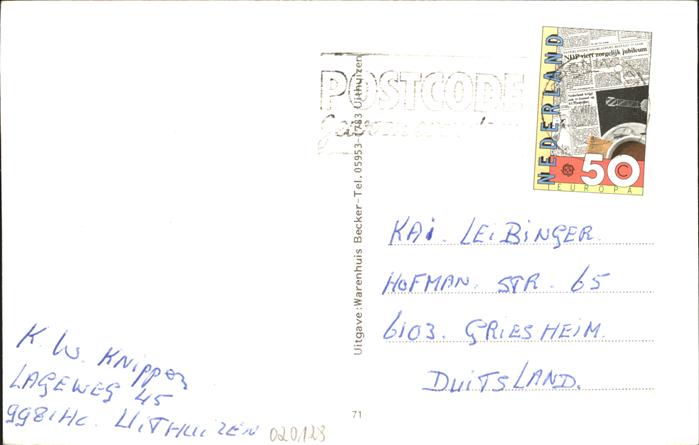 POSTCODE
NEDERLAND
NDP viert zorgelijk jubileum
50 C
EUROPA
Uitgave: Warenhuis Becker - Tel. 05953-1783 Uithuizen
KAI. LEIBINGER.
HOFMAN. STR. 65
6103. GRIESHEIM.
DUITSLAND.
K. W. KNIPPER
LAGEWEG 45
9981HC. UITHUIZEN
020,123
71